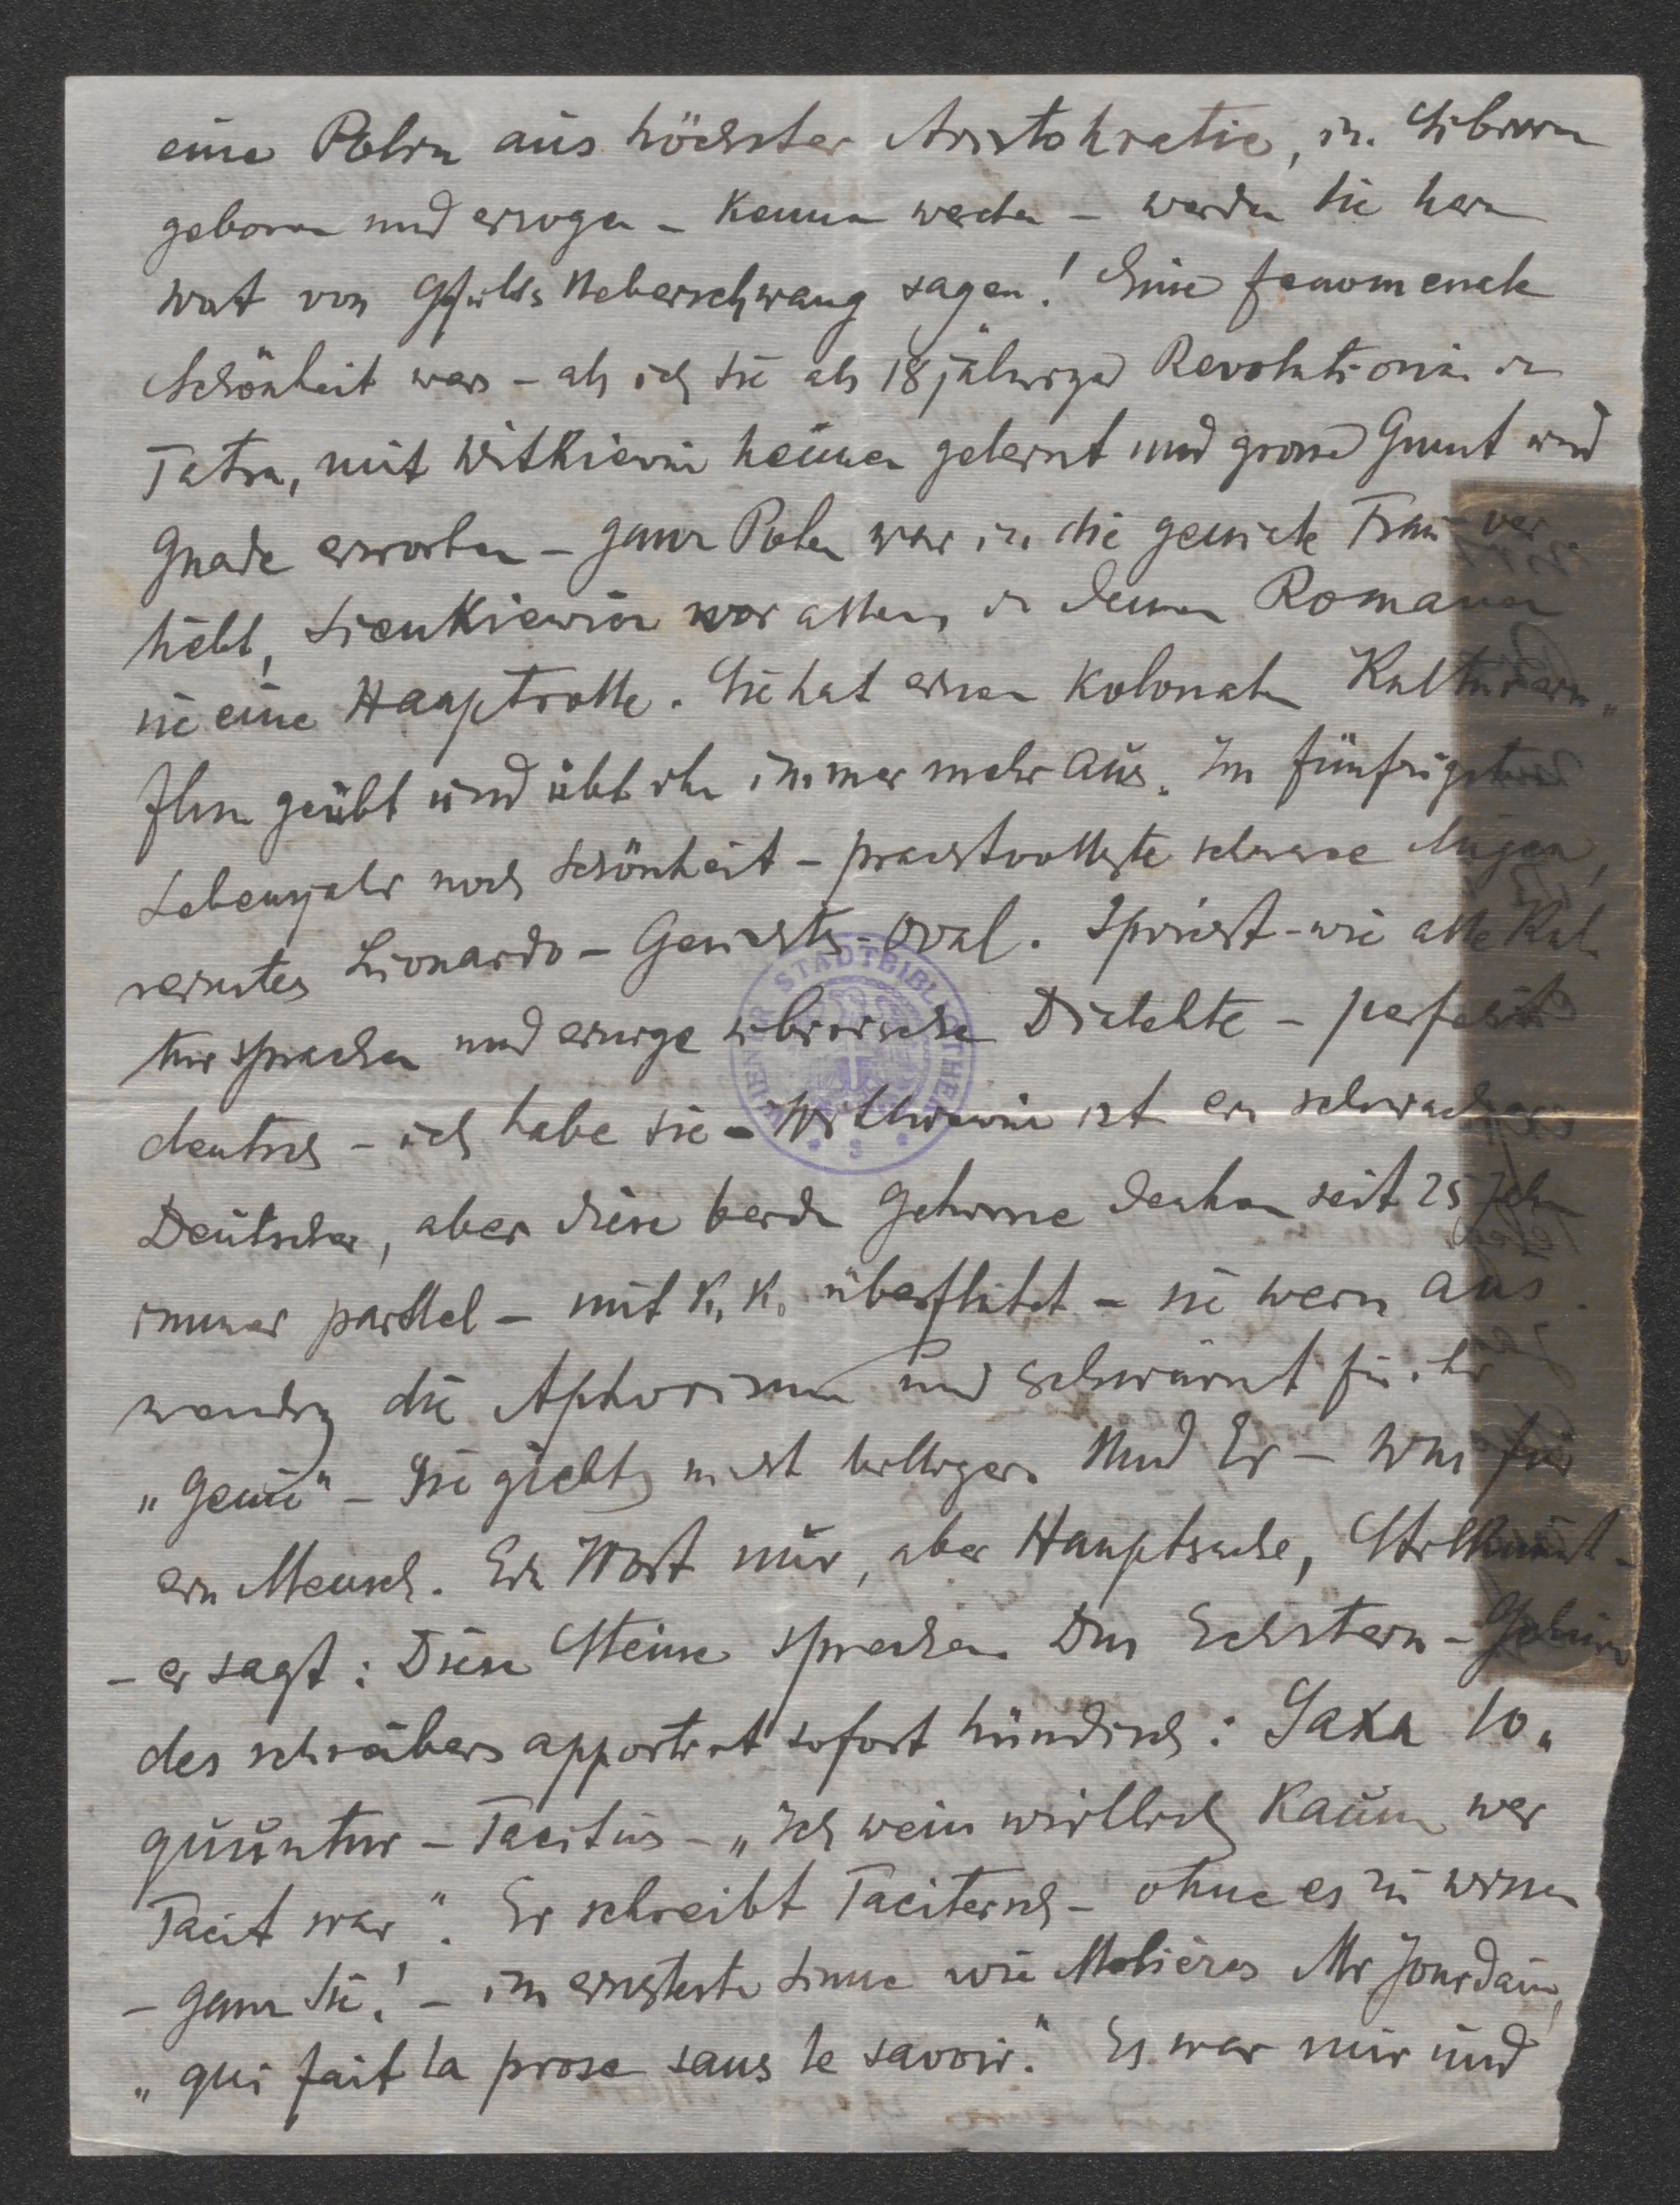 eine Polin aus höchster Aristokratie, in Sibirien
geboren und erzogen – kennen werden – werden Sie kein
Wort von Gefühls Ueberschwang sagen! Eine fenomenale
Schönheit war – als ich sie als 18 jähriges Revolutionärin in
Tatra, mit Witkiewicz kennen gelernt und grosse Gunst und
Gnade erworben – ganz Polen war in die geniale Frau ver
liebt, Sienkiewicz vor allem, in dessen Romanen
sie eine Hauptrolle. Sie hat einen kolossalen Kulturein„
fluss geübt und übt ihn immer mehr aus. Im fünfzigsten
Lebensjahr noch Schönheit – prachtvollste schwarze Augen,
ernstes Lionardo – Gesichts-Oval. Spricht – wie alle Kul
tursprachen und einige sibirische Dialekte – perfekt
deutsch – ich habe sie – Witkiewicz ist ein schwacher
Deutscher, aber diese beiden Gehirne denken seit 25 Jahren
immer parallel – mit K. K. überflutet – sie weiss aus
wendig die Aphorismen und schwärmt für ihr
„Genie“ – Sie giebts nicht billiger. Und Er – Was für
ein Mensch. Ein Wort nur, aber Hauptsache,
– er sagt: Diese Steine sprechen. Das – Gehirn
des Schreibers apportirt sofort hündisch: Saxa lo„
quuntur – Tacitus – „Ich weiss wirklich kaum wer
Tacit war“. Er schreibt Taciteisch – ohne es zu wissen
– ganz Sie! – im ernstesten Sinne wie Molières Mr Jourdain,
„qui fait la prose sans le savoir.“ Es war mir und
WIENER STADTBIBLIOTHEK